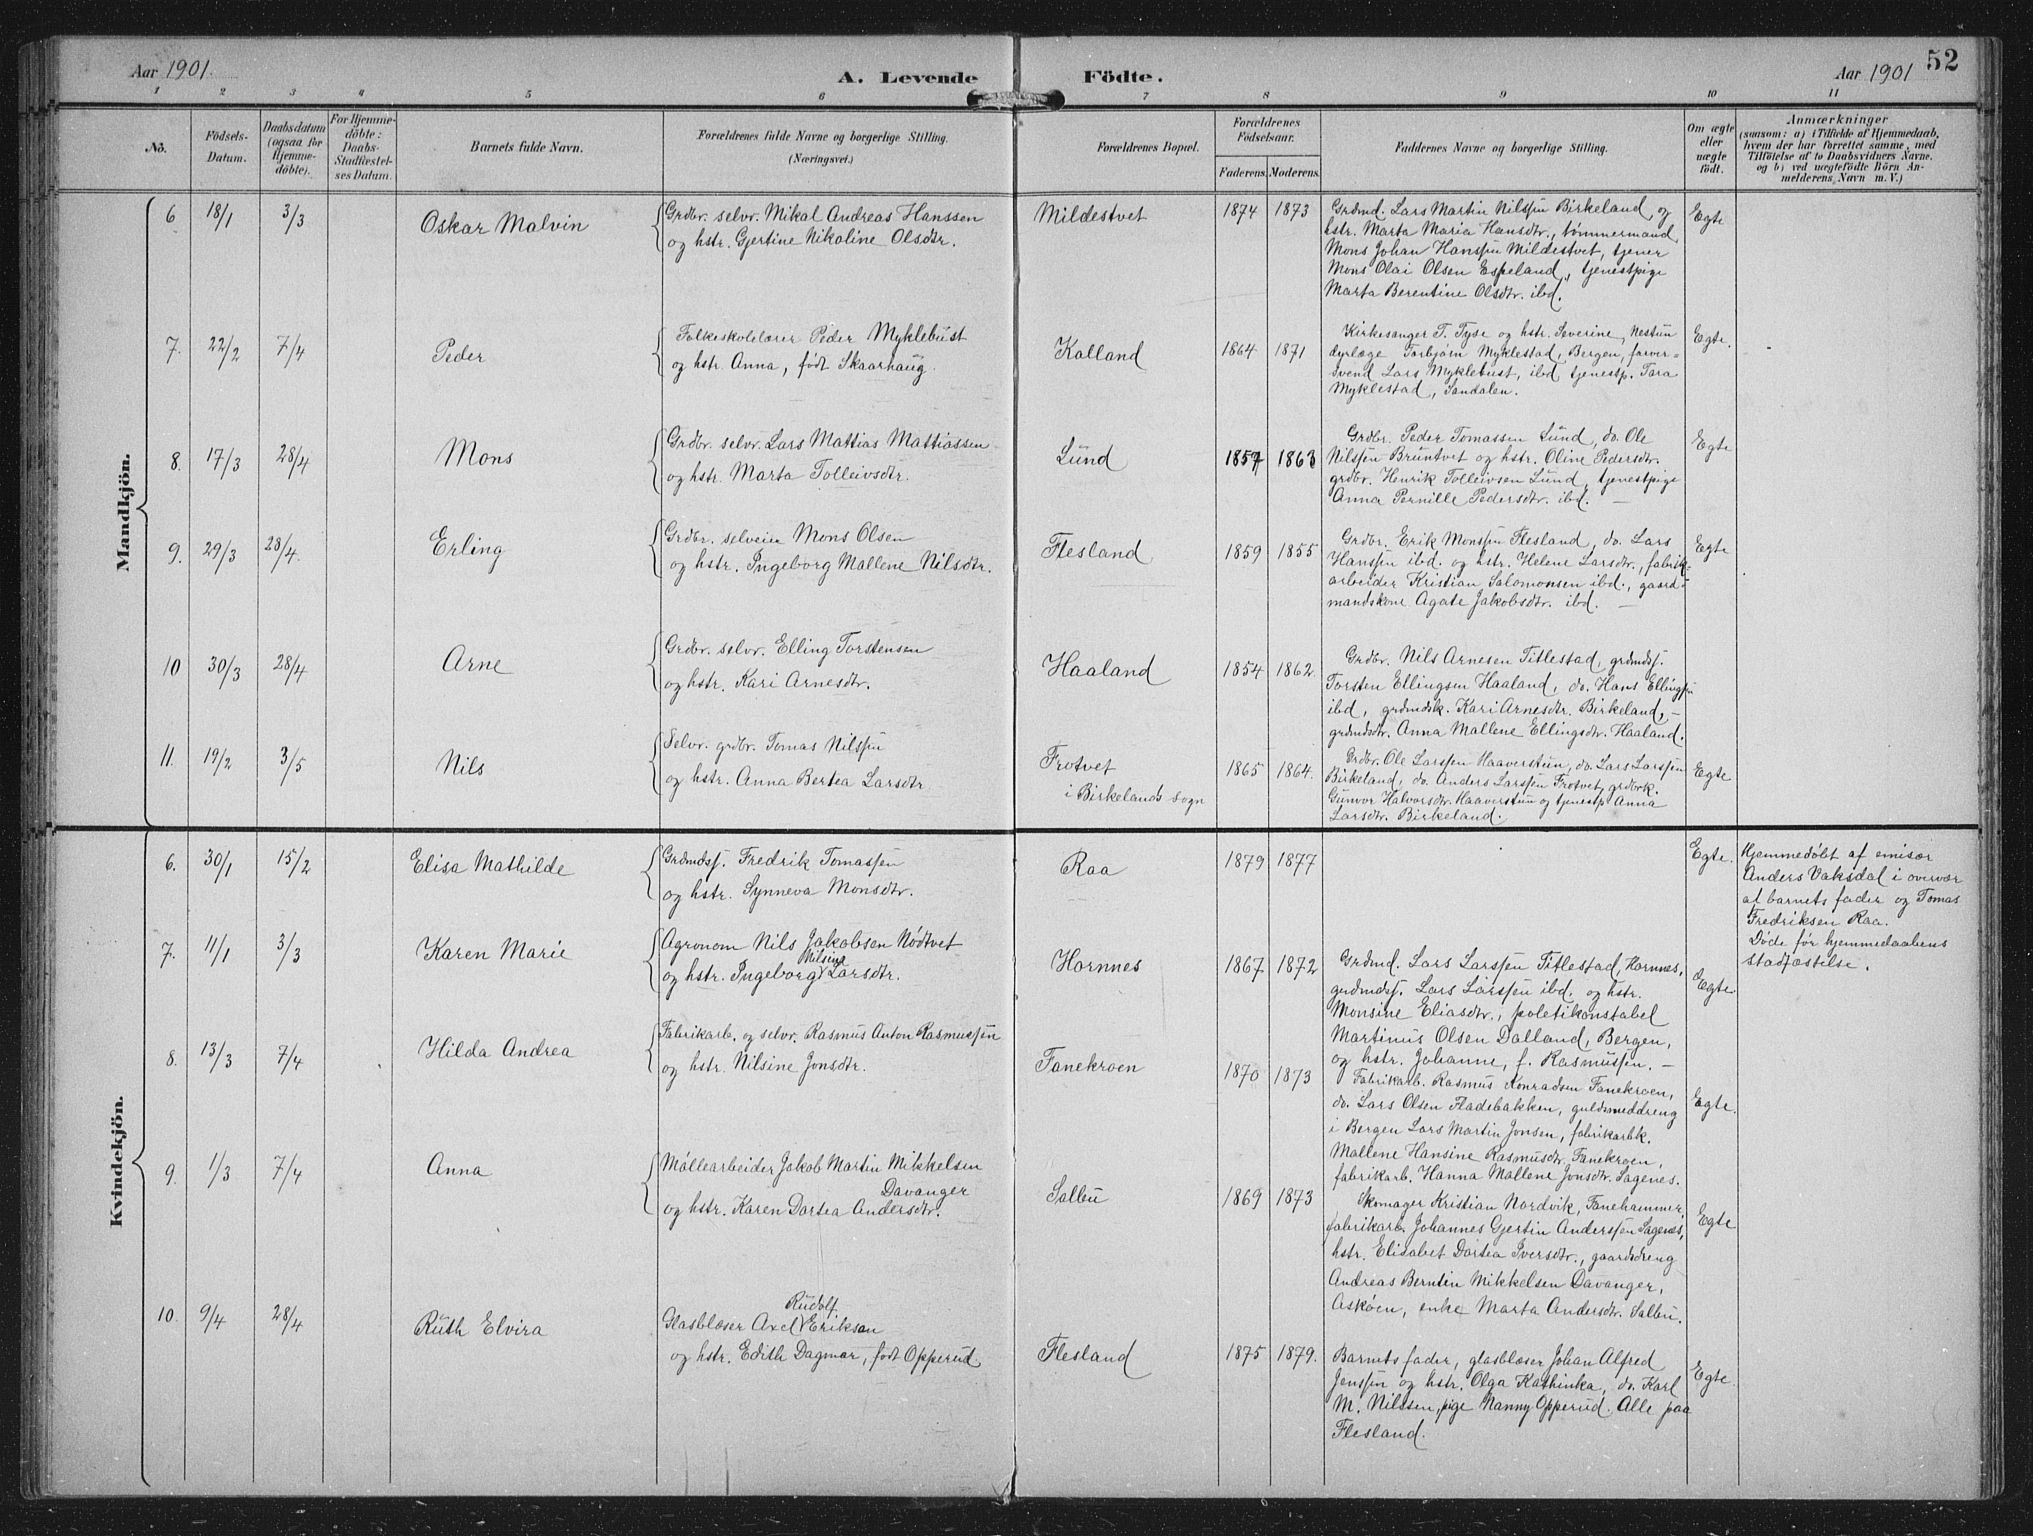 Aar 1901.
A. Levende Födte.
Aar 1901
52
1 2 3 4 5 6 7 8 9 10 11
No.
Födsels-
Datum.
Daabsdatum
(ogsaa for
Hjemme-
döbte).
For Hjemme-
döbte:
Daabs-
Stadfæstel-
ses Datum.
Barnets fulde Navn.
Forældrenes fulde Navne og borgerlige Stilling.
(Næringsvei.)
Forældrenes Bopæl.
Forældrenes
Födselsaar.
Faderens. Moderens.
Faddernes Navne og borgerlige Stilling.
Om ægte
eller
uægte
födt.
Anmærkninger
(saasom: a) i Tilfælde af Hjemmedaab,
hvem der har forrettet samme, med
Tilföielse af to Daabsvidners Navne,
og b) ved uægtefödte Börn An-
melderens Navn m. V.)
Mandkjön.
6 18/1 3/3 Oskar Malvin
Grdbr. selvr. Mikal Andreas Hanssen
og hstr. Gjertine Nikoline Olsdtr.
Mildestvet 1874 1873
Grdmd. Lars Martin Nilssen Birkeland, og
hstr. Marta Maria Hansdtr., tømmermand
Mons Johan Hanssen Mildestvet, tjener
Mons Olai Olsen Espeland, tjenestpige
Marta Berentine Olsdtr. ibd.
Egte
7. 22/2 7/4 Peder
Folkeskolelærer Peder Myklebust
og hstr. Anna, født Skaarhaug.
Kalland 1864 1871
Kirkesanger T. Tyse og hstr. Severine, Nestun
dyrlæge Torbjørn Myklestad, Bergen, farver-
svend Lars Myklebust, ibd tjenestp. Tara
Myklestad, Sandalen.
Egte.
8. 17/3 28/4 Mons
Grdbr. selvr. Lars Mattias Mattiassen
og hstr. Marta Tolleivsdtr.
Lund 1857 1863
Grdbr. Peder Tomassen Lund, do. Ole
Nilssen Bruntvet og hstr. Oline Pedersdtr.
grdbr. Henrik Tolleivsen Lund, tjenestpige
Anna Pernille Pedersdtr. ibd. —
Egte
9. 29/3 28/4. Erling
Grdbr. selveier Mons Olsen
og hstr. Ingeborg Mallene Nilsdtr.
Flesland 1859 1855
Grdbr. Erik Monssen Flesland, do. Lars
Hanssen ibd. og hstr. Helene Larsdtr., fabrik-
arbeider Kristian Salomonsen ibd., gaard-
mandskone Agate Jakobsdtr. ibd. —
Egte
10 30/3 28/4 Arne
Grdbr. selvr. Elling Torstensen
og hstr. Kari Arnesdtr.
Haaland 1854 1862.
Grdbr. Nils Arnesen Titlestad, grdmdss.
Torsten Ellingsen Haaland, do. Hans Ellingsen
ibd, grdmdsk. Kari Arnesdtr. Birkeland, —
grdmdsdtr. Anna Mallene Ellingsdtr. Haaland.
11. 19/2 3/5 Nils
Selvr. grdbr. Tomas Nilssen
og hstr. Anna Bertea Larsdtr
Frotvet
i Birkelands sogn
1865 1864.
Grdbr. Ole Larssen Haaverstun, do. Lars Larssen
Birkeland, do. Anders Larssen Frotvet, grdbrk.
Gunvor Halvorsdtr. Haaverstun og tjenestp Anna
Larsdtr. Birkeland.
Egte
Kvindekjön.
6. 30/1 15/2 Elisa Mathilde
Grdmdss. Fredrik Tomassen
og hstr. Synneva Monsdtr.
Raa 1879 1877
Egte.
Hjemmedøbt af emisær
Anders Vaksdal i overvær
af barnets fader og Tomas
Fredriksen Raa.
Døde før hjemmedaabens
stadfæstelse.
7. 11/1 3/3 Karen Marie
Agronom Nils Jakobsen Nødtvet
Nilsina
og hstr. Ingeborg Larsdtr.
Hornnes 1867 1872
Grdmd. Lars Larssen Titlestad, Hornnes,
grdmdss. Lars Larssen ibd. og hstr.
Monsine Eliasdtr., politikonstabel
Martinus Olsen Dalland, Bergen,
og hstr. Johanne, f. Rasmussen. —
Egte.
8. 13/3 7/4 Hilda Andrea
Fabrikarb. og selvr. Rasmus Anton Rasmussen
og hstr. Nilsine Jonsdtr.
Fanekroen 1870 1873
Fabrikarb. Rasmus Konradsen Fanekroen,
do. Lars Olsen Fladebakken, guldsmeddreng
i Bergen Lars Martin Jonsen, fabrikarbk.
Mallene Hansine Rasmusdtr. Fanekroen,
fabrikarb. Hanna Mallene Jonsdtr. Sagenes.
Egte.
9. 1/3 7/4 Anna
Møllearbeider Jakob Martin Mikkelsen
Davanger
og hstr. Karen Dortea Andersdtr.
Salbu 1869 1873
Skomager Kristian Nordvik, Fanehammer,
fabrikarb. Johannes Gjertin Anderssen Sagenes,
hstr. Elisabet Dortea Iversdtr., gaardsdreng
Andreas Berntin Mikkelsen Davanger,
Askøen, enke Marta Andersdtr. Salbu.
Egte
10. 9/4 28/4 Ruth Elvira
Rudolf
Glasblæser Axel Erikson
og hstr. Edith Dagmar, født Opperud
Flesland 1875 1879.
Barnets fader, glasblæser Johan Alfred
Jenssen og hstr. Olga Kathinka, do. Karl
M. Nilssen, pige Nanny Opperud. Alle paa
Flesland.
Egte.